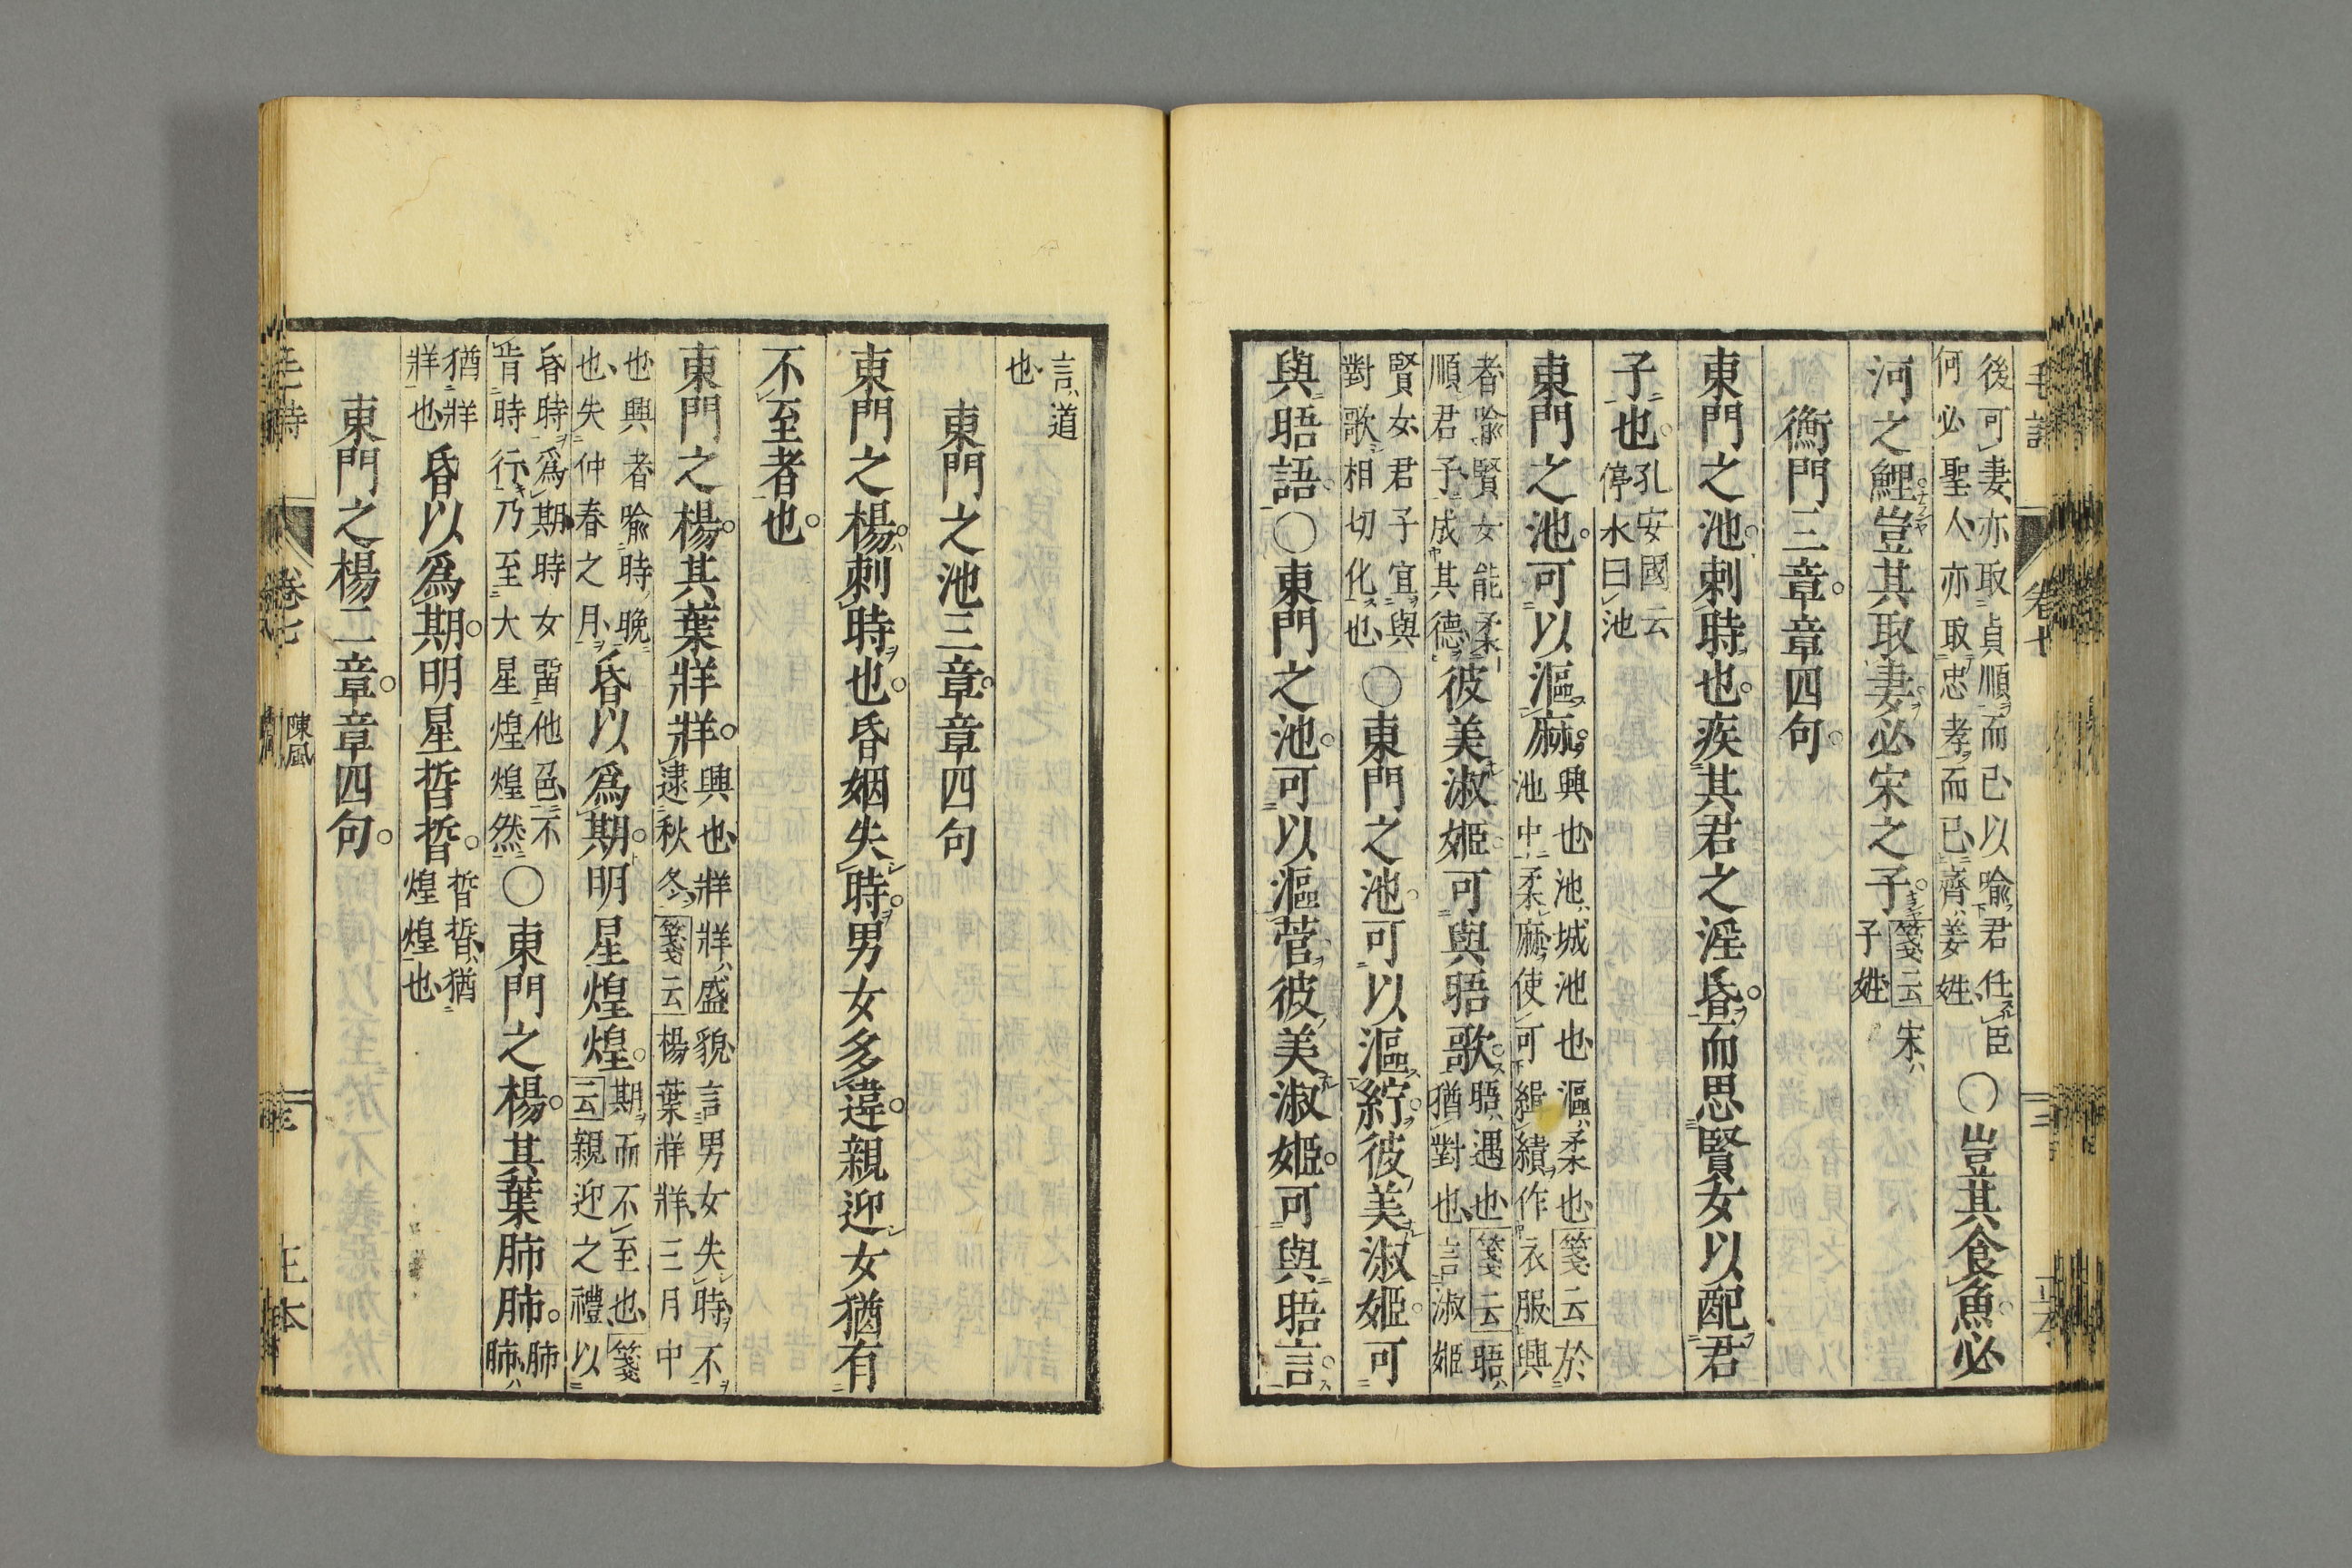 後可妻亦取貞順而已以喻君任臣
何必聖人亦取忠孝而已齊姜姓
○豈其食魚必
河之鯉豈其取妻必宋之子
箋云宋
子姓
衡門三章章四句
東門之池刺時也疾其君之淫昏而思賢女以配君
子也
孔安國云
停水曰池
東門之池可以漚麻
興也池城池也漚柔也箋云於
池中柔麻使可緝績作衣服興
者喻賢女能柔
順君子成其德
彼美淑姬可與晤歌
晤遇也箋云晤
猶對也言淑姬
賢女君子宜與
對歌相切化也
○東門之池可以漚紵彼美淑姬可
與晤語○東門之池可以漚菅彼美淑姬可與晤言
言道
也
東門之池三章章四句
東門之楊刺時也昏姻失時男女多違親迎女猶有
不至者也
東門之楊其葉牂牂
興也牂牂盛貌言男女失時不
逮秋冬箋云楊葉牂牂三月中
也興者喻時晚
也失仲春之月
昏以為期明星煌煌
期而不至也箋
云親迎之禮以
昏時為期時女畱他邑不
肯時行乃至大星煌煌然
○東門之楊其葉肺肺
肺
肺
猶牂
牂也
昏以為期明星晢晢
晢晢猶
煌煌也
東門之楊二章章四句
卷七
陳風